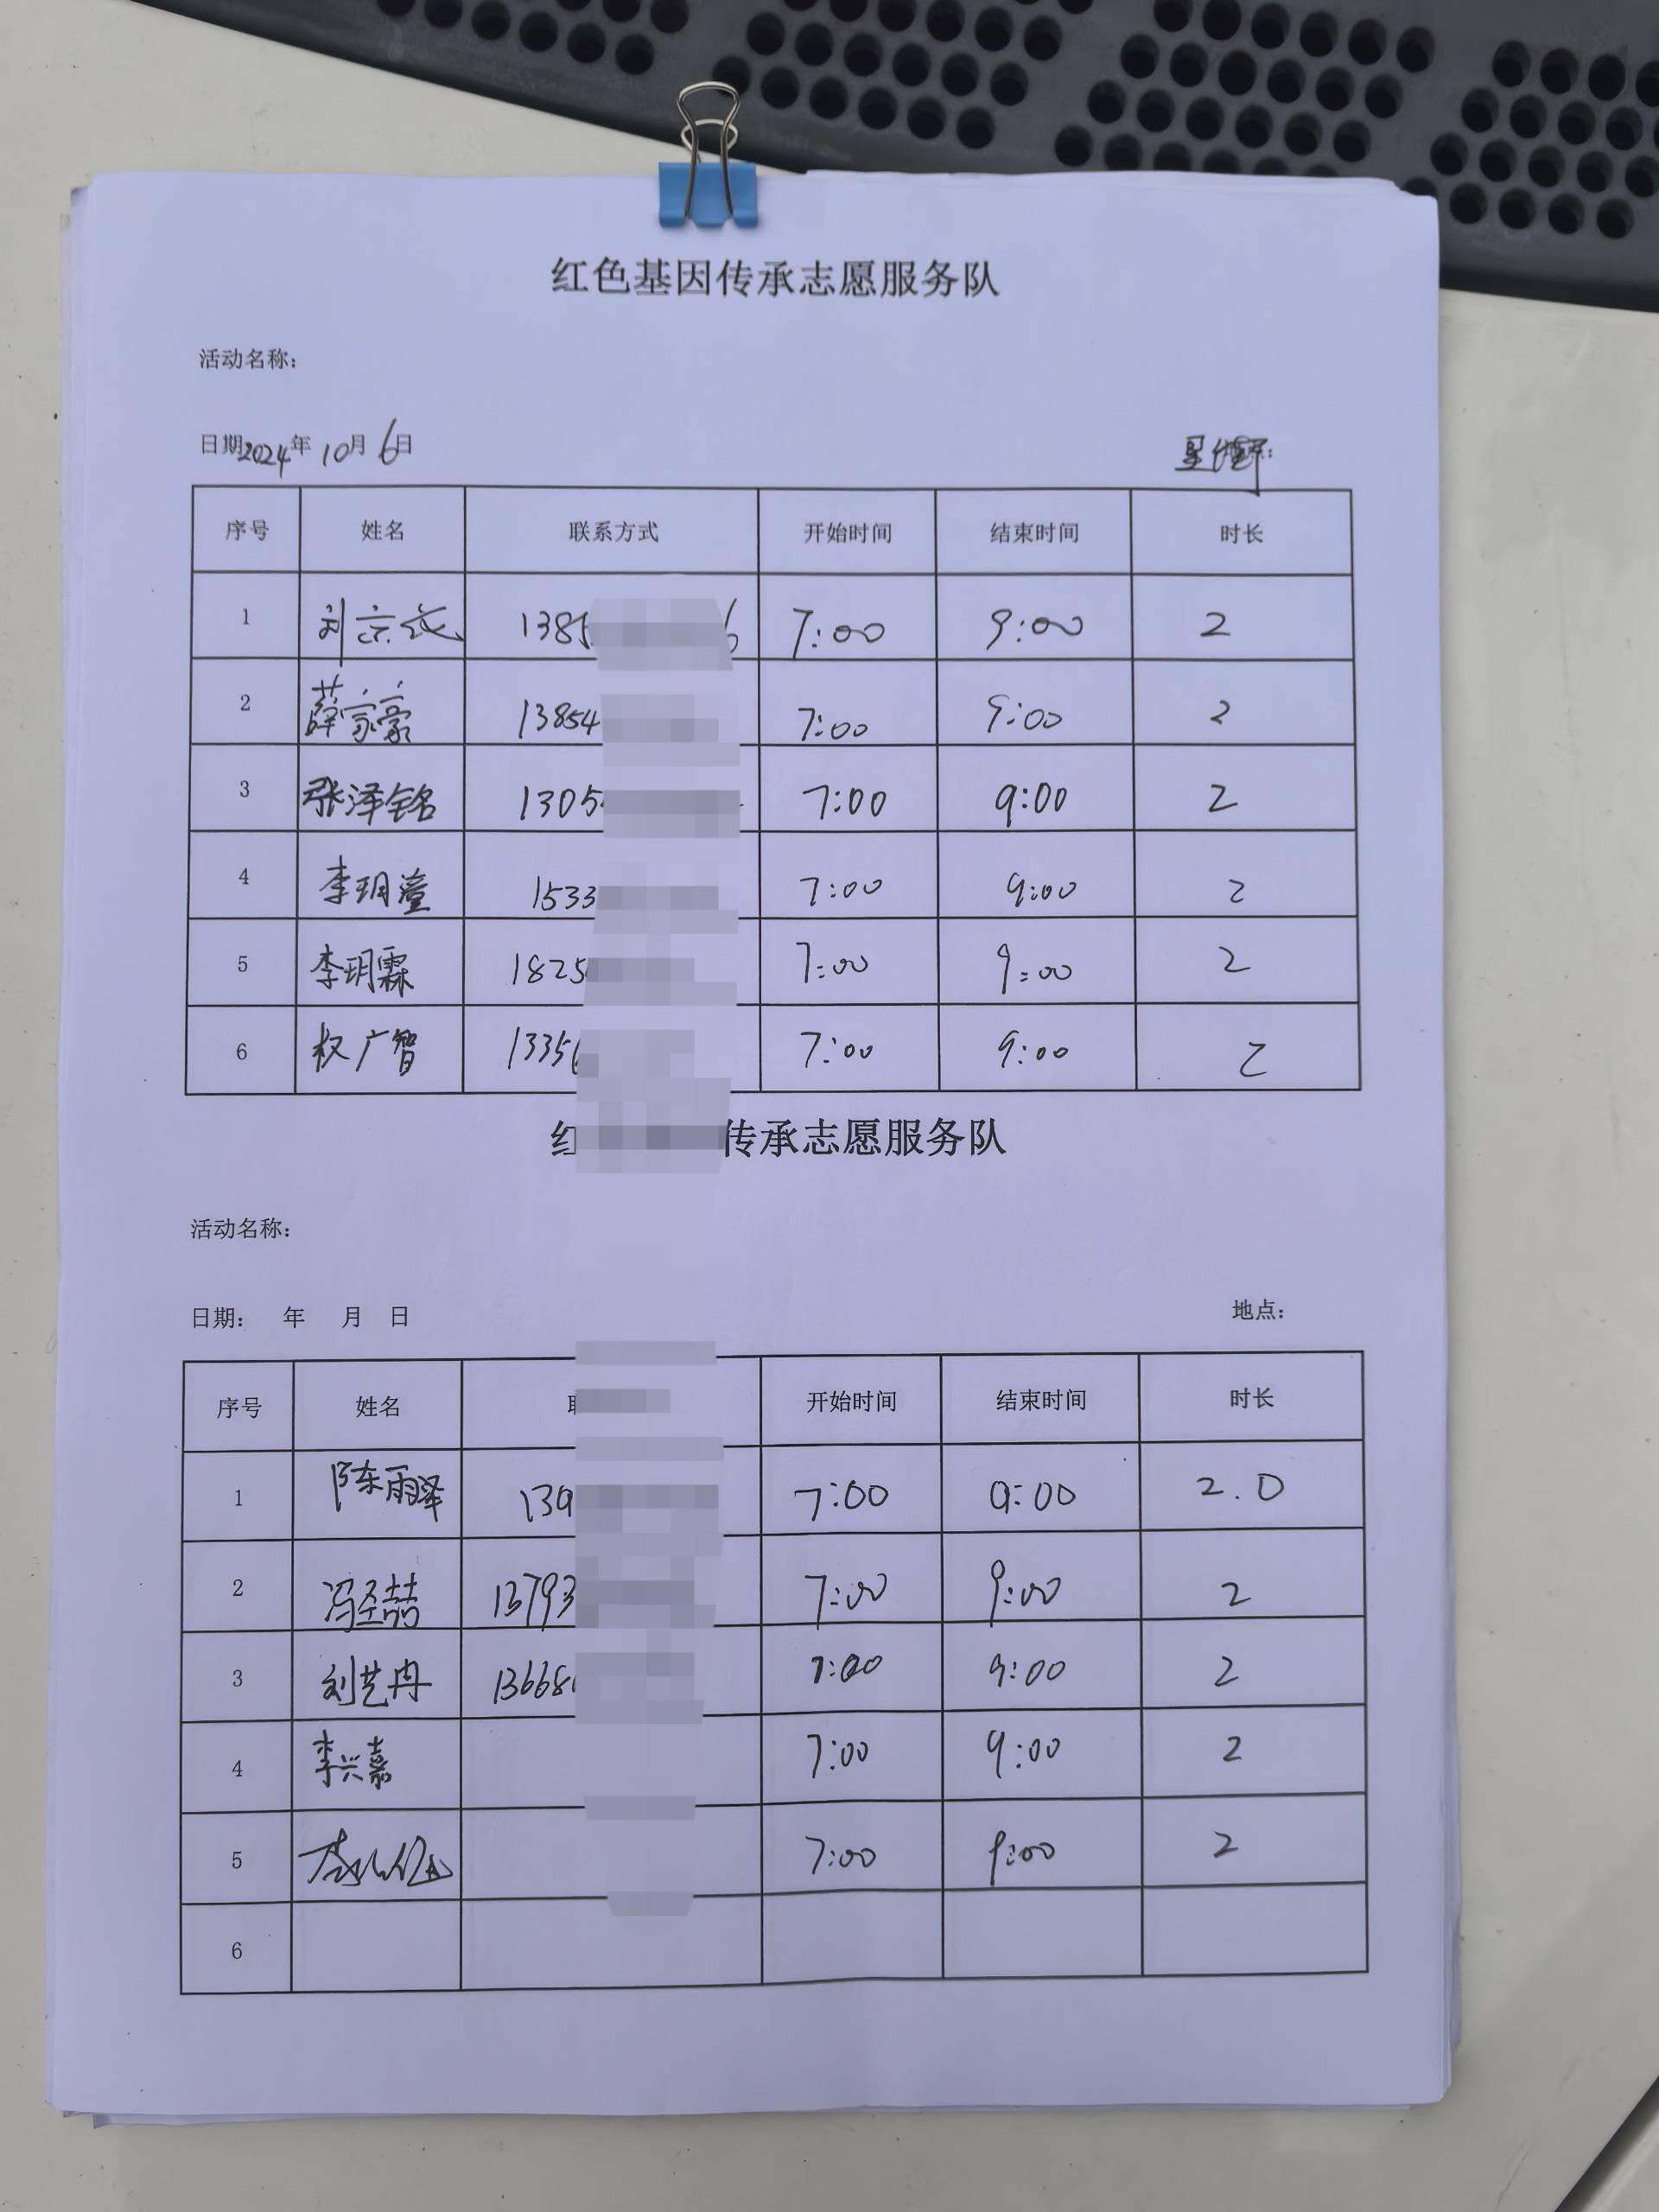 红色基因传承志愿服务队
活动名称：
日期2024年10月6日
序号 姓名 联系方式 开始时间 结束时间 时长
1 刘 1385 6 7:00 9:00 2
2 薛家豪 13854 7:00 9:00 2
3 张泽铭 1305 7:00 9:00 2
4 李玥潼 1533 7:00 9:00 2
5 李玥霖 1825 7:00 9:00 2
6 权广智 1335 7:00 9:00 2
红 传承志愿服务队
活动名称：
日期： 年 月 日 地点：
序号 姓名 开始时间 结束时间 时长
1 陈雨泽 139 7:00 9:00 2.0
2 冯圣喆 13793 7:00 9:00 2
3 刘艺冉 13668 7:00 9:00 2
4 李兴嘉 7:00 9:00 2
5 7:00 9:00 2
6